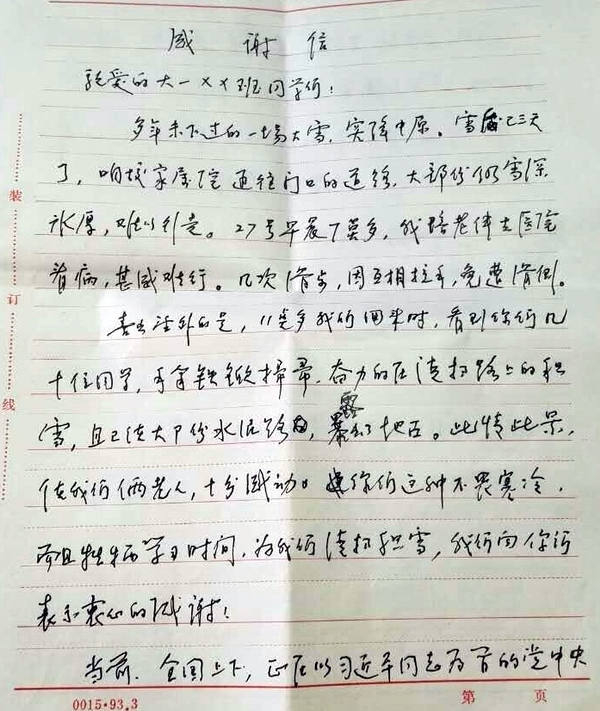 感 谢 信
亲爱的大一××班同学们:
多年未下过的一场大雪,突降中原。雪后已三天
了,咱校家属院通往门口的道路,大部份仍雪深
冰厚,难以行走。27号早晨7点多,我陪老伴去医院
看病,甚感难行。几次滑步,因互相拉手,免遭滑倒。
喜出望外的是,11点多我们回来时,看到你们几
十位同学,手拿铁锨扫帚,奋力的在清扫路上的积
雪,且已使大部份水泥路面,露出地面。此情此景,
使我们俩老人,十分感动。你们这种不畏寒冷,
而且牺牲学习时间,为我们清扫积雪,我们向你们
表示衷心的感谢!
当前,全国上下,正在以习近平同志为首的党中央
装
订
线
0015·93.3
第 页